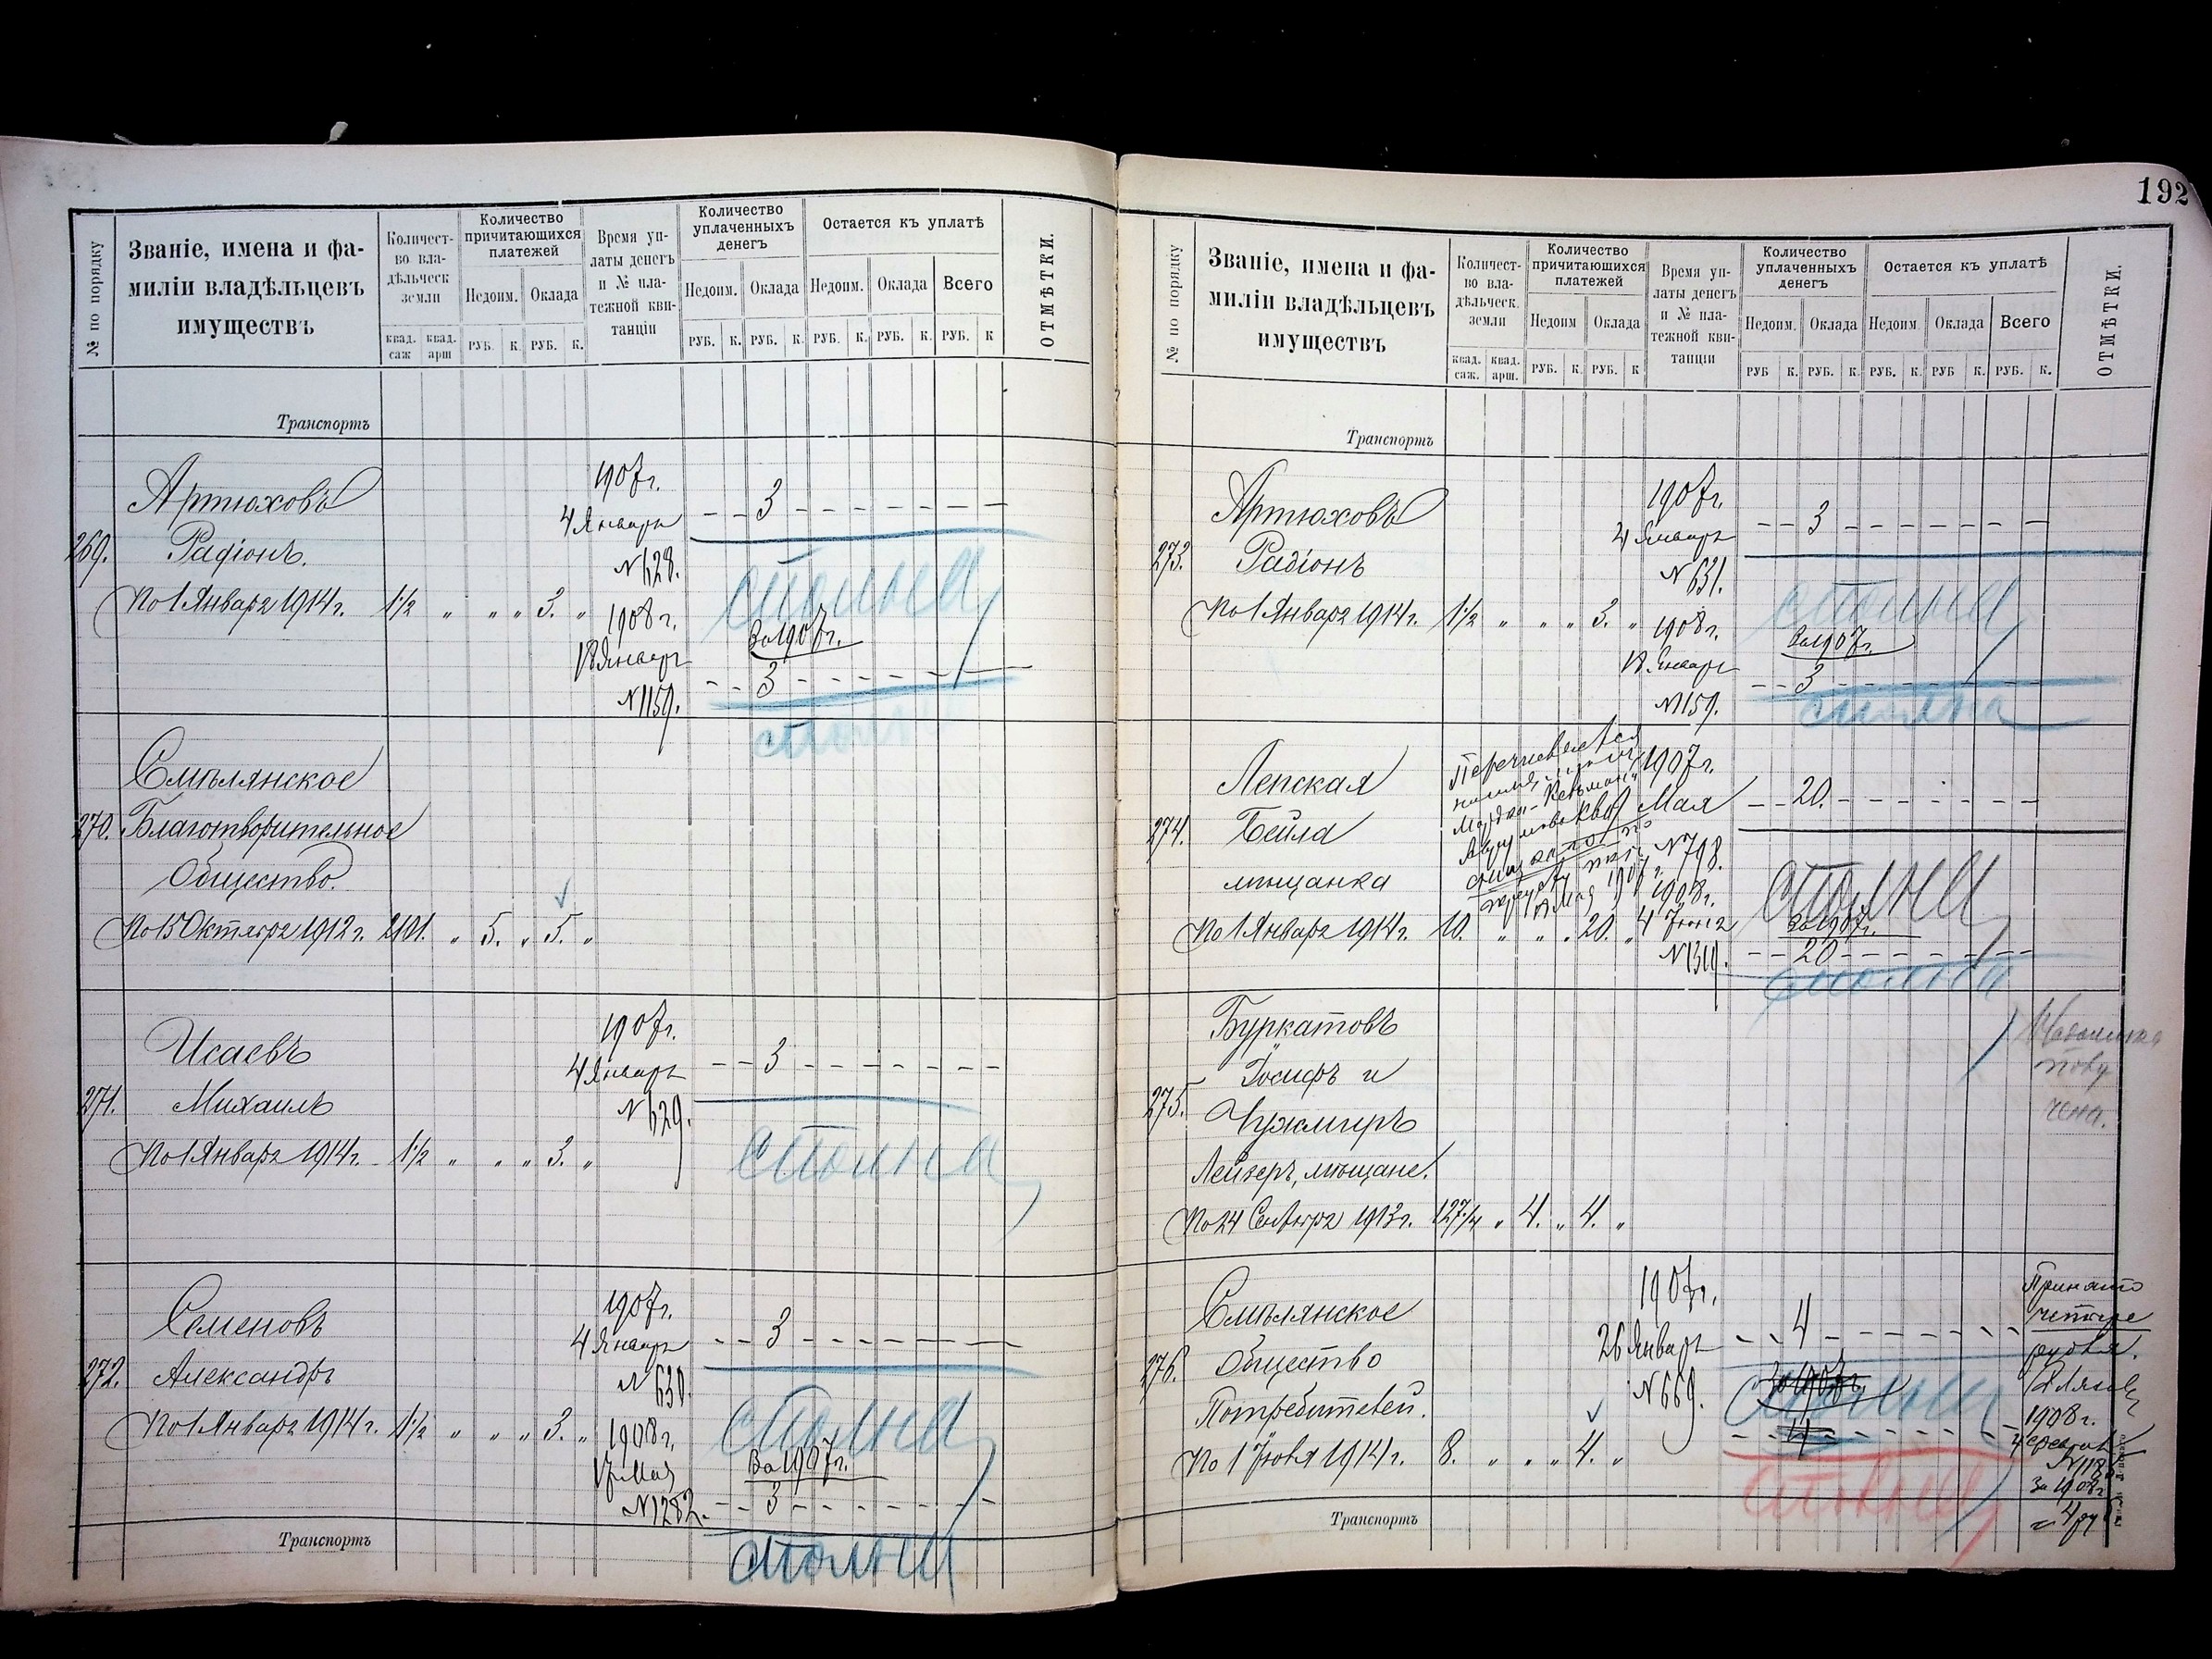 192
№ по порядку
Званіе, имена и фа-
миліи владѣльцевъ
имуществъ
Количест-
во вла-
дѣльческ
земли
квад. саж
квад. арш
Количество
причитающихся
платежей
Недоим.
Оклада
РУБ. К. РУБ. К.
Время уп-
латы денегъ
и № пла-
тежной кви-
танціи
Количество
уплаченныхъ
денегъ
Недоим.
Оклада
РУБ. К. РУБ. К.
Остается къ уплатѣ
Недоим.
Оклада
Всего
РУБ. К. РУБ. К. РУБ. К
ОТМѢТКИ.
Транспортъ
Артюховъ
269. Радіонъ.
По 1 Января 1914 г. 1 1/2 „ „ „ 3. „
1907 г.
4 Января
3
№ 628.
1908 г.
За 1907 г.
18 Января
3
№ 1159.
Смѣлянское
270. Благотворительное
Общество.
По 15 Октября 1912 г. 2101. „ 5. „ 5. „
Исаевъ
271. Михаилъ
По 1 Января 1914 г. 1 1/2 „ „ „ 3. „
1907 г.
4 Января
3
№ 629.
Семеновъ
272. Александръ
По 1 Января 1914 г. 1 1/2 „ „ „ 3. „
1907 г.
4 Января
3
№ 630.
1908 г.
За 1907 г.
17 Мая
3
№ 1282.
Транспортъ
№ по порядку
Званіе, имена и фа-
миліи владѣльцевъ
имуществъ
Количест-
во вла-
дѣльческ.
земли
квад. саж.
квад. арш.
Количество
причитающихся
платежей
Недоим
Оклада
РУБ. К. РУБ. К
Время уп-
латы денегъ
и № пла-
тежной кви-
танціи
Количество
уплаченныхъ
денегъ
Недоим.
Оклада
РУБ К. РУБ. К.
Остается къ уплатѣ
Недоим.
Оклада
Всего
РУБ. К. РУБ К. РУБ. К.
ОТМѢТКИ.
Транспортъ
Артюховъ
273. Радіонъ
По 1 Января 1914 г. 1 1/2 „ „ „ 3. „
1907 г.
4 Января
3
№ 631.
1908 г.
За 1907 г.
18 Января
3
№ 1159.
Лепская
274. Бейла
мѣщанка
По 1 Января 1914 г. 10. „ „ „ 20. „
1907 г.
Мая
20.
№ 798.
1908 г.
4 Іюня
За 1907 г.
20
Буркатовъ
Іосифъ и
275. Чужмиръ
Лейзеръ, мѣщане.
По 24 Сентября 1913 г. 127 1/4 „ 4. „ 4. „
Смѣлянское
276. Общество
Потребителей.
По 1 Іюля 1914 г. 8. „ „ „ 4. „
1907 г.
26 Января
4
№ 669.
4
Принято
четыре
рубля.
1908 г.
За 1908 г.
4 ру
Транспортъ